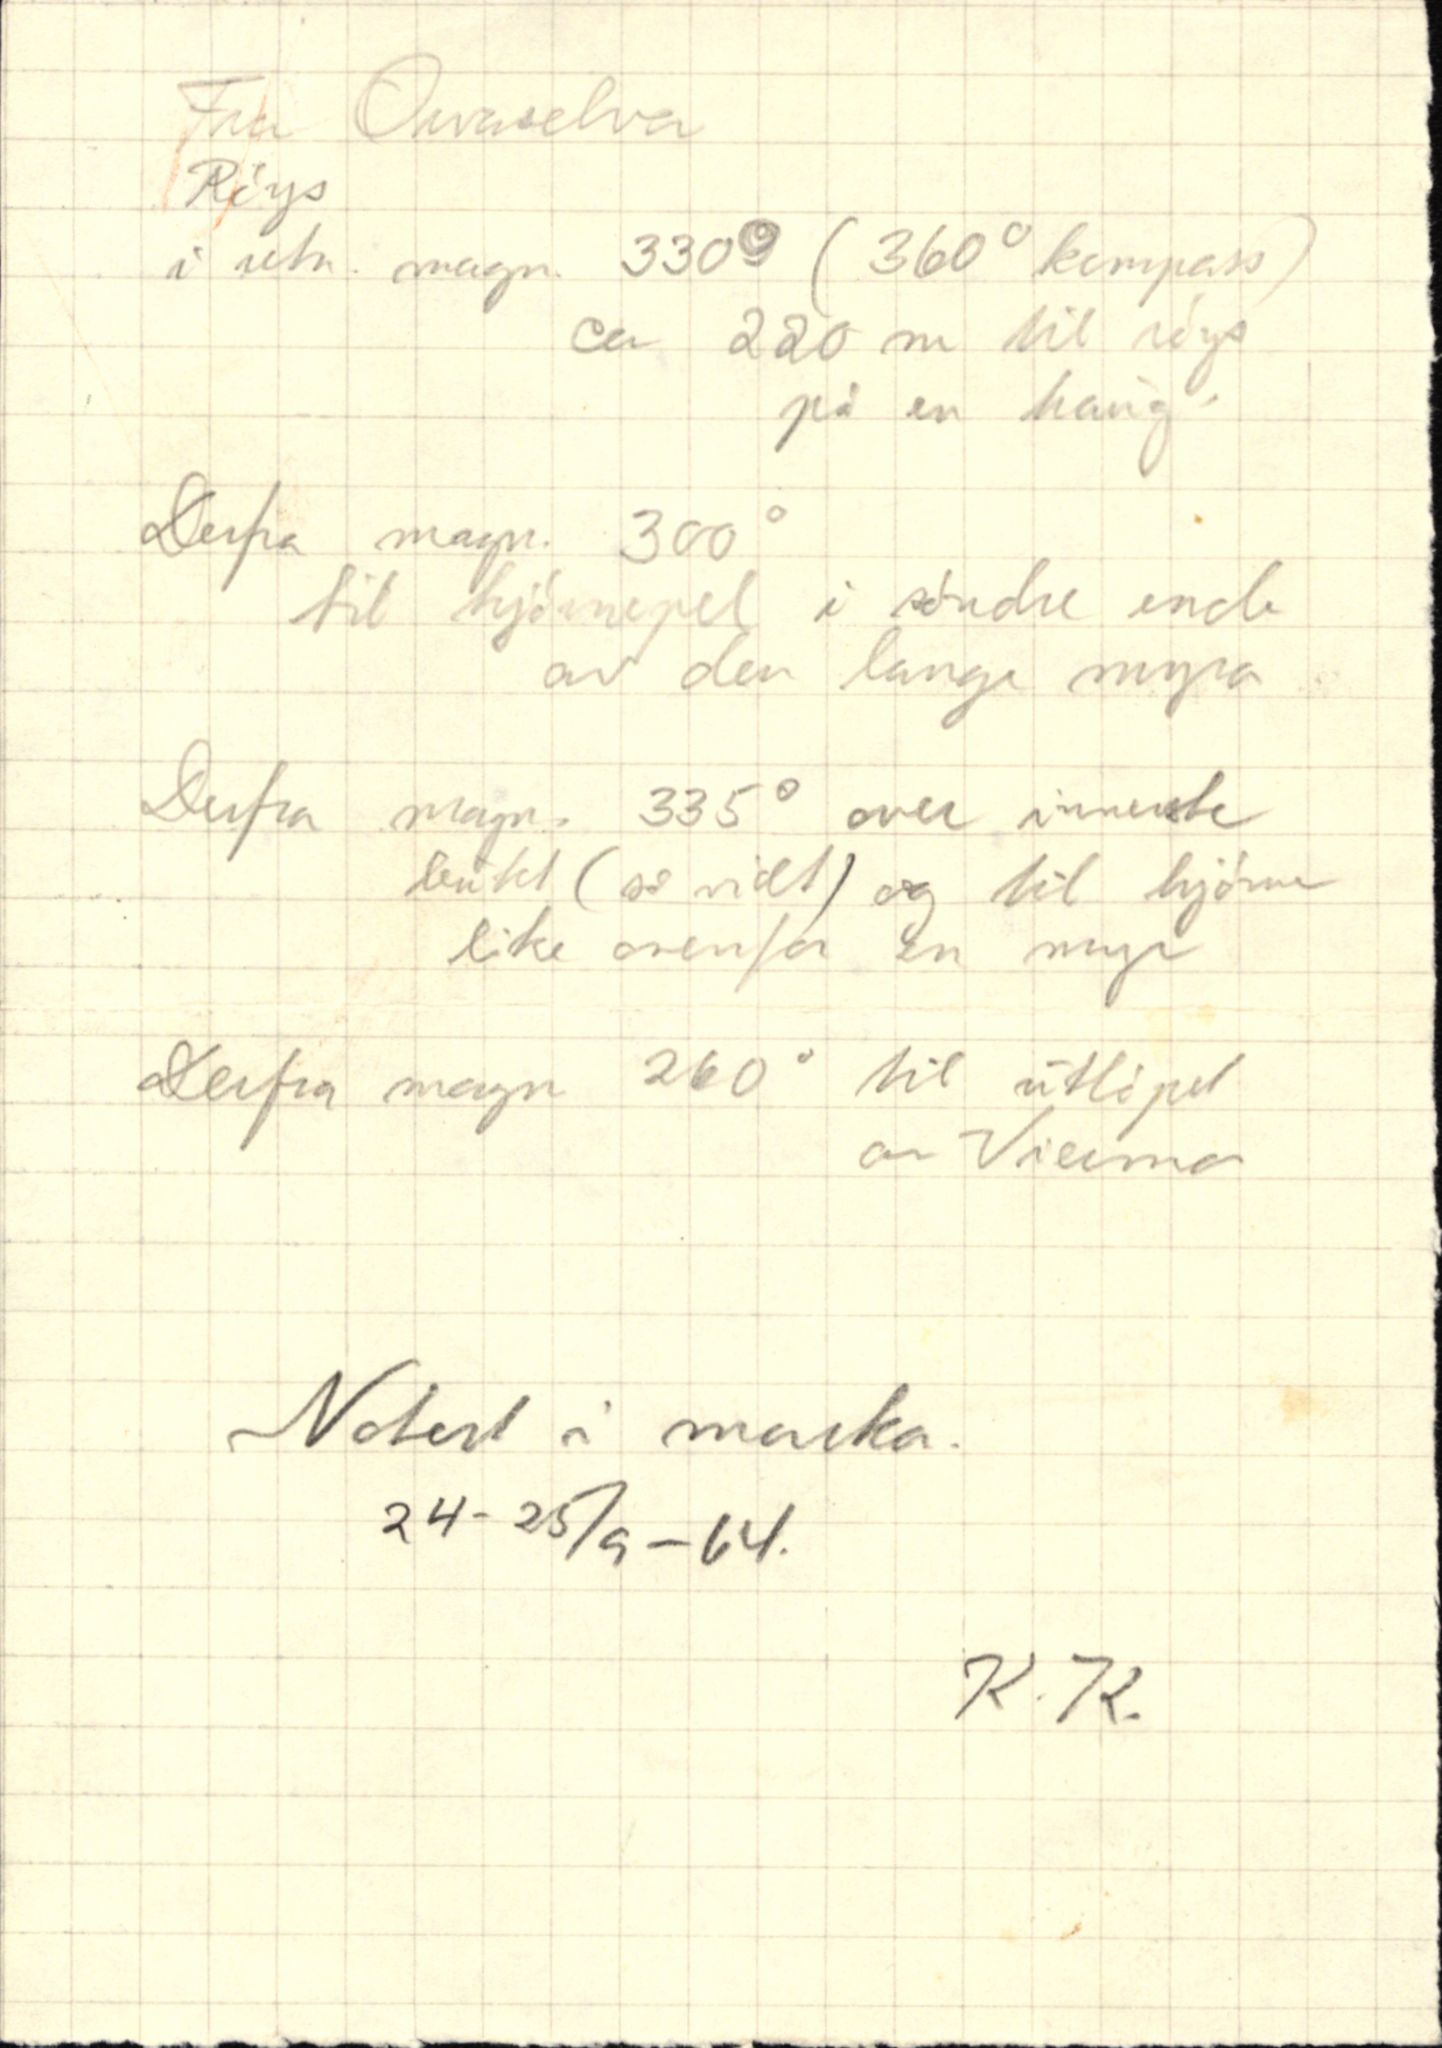 Fra Orvaselva
Röys
i retn. magn. 330° (360° kompass)
ca 220 m til röys
på en haug.
Derfra magn. 300°
til hjörnepel i söndre ende
av den lange myra
Derfra magn. 335° over innerste
bukt (så vidt) og til hjörne
like ovenfor en myr
Derfra magn 260° til utlöpet
av Vierma
Notert i marka.
24-25/9-64.
K.K.